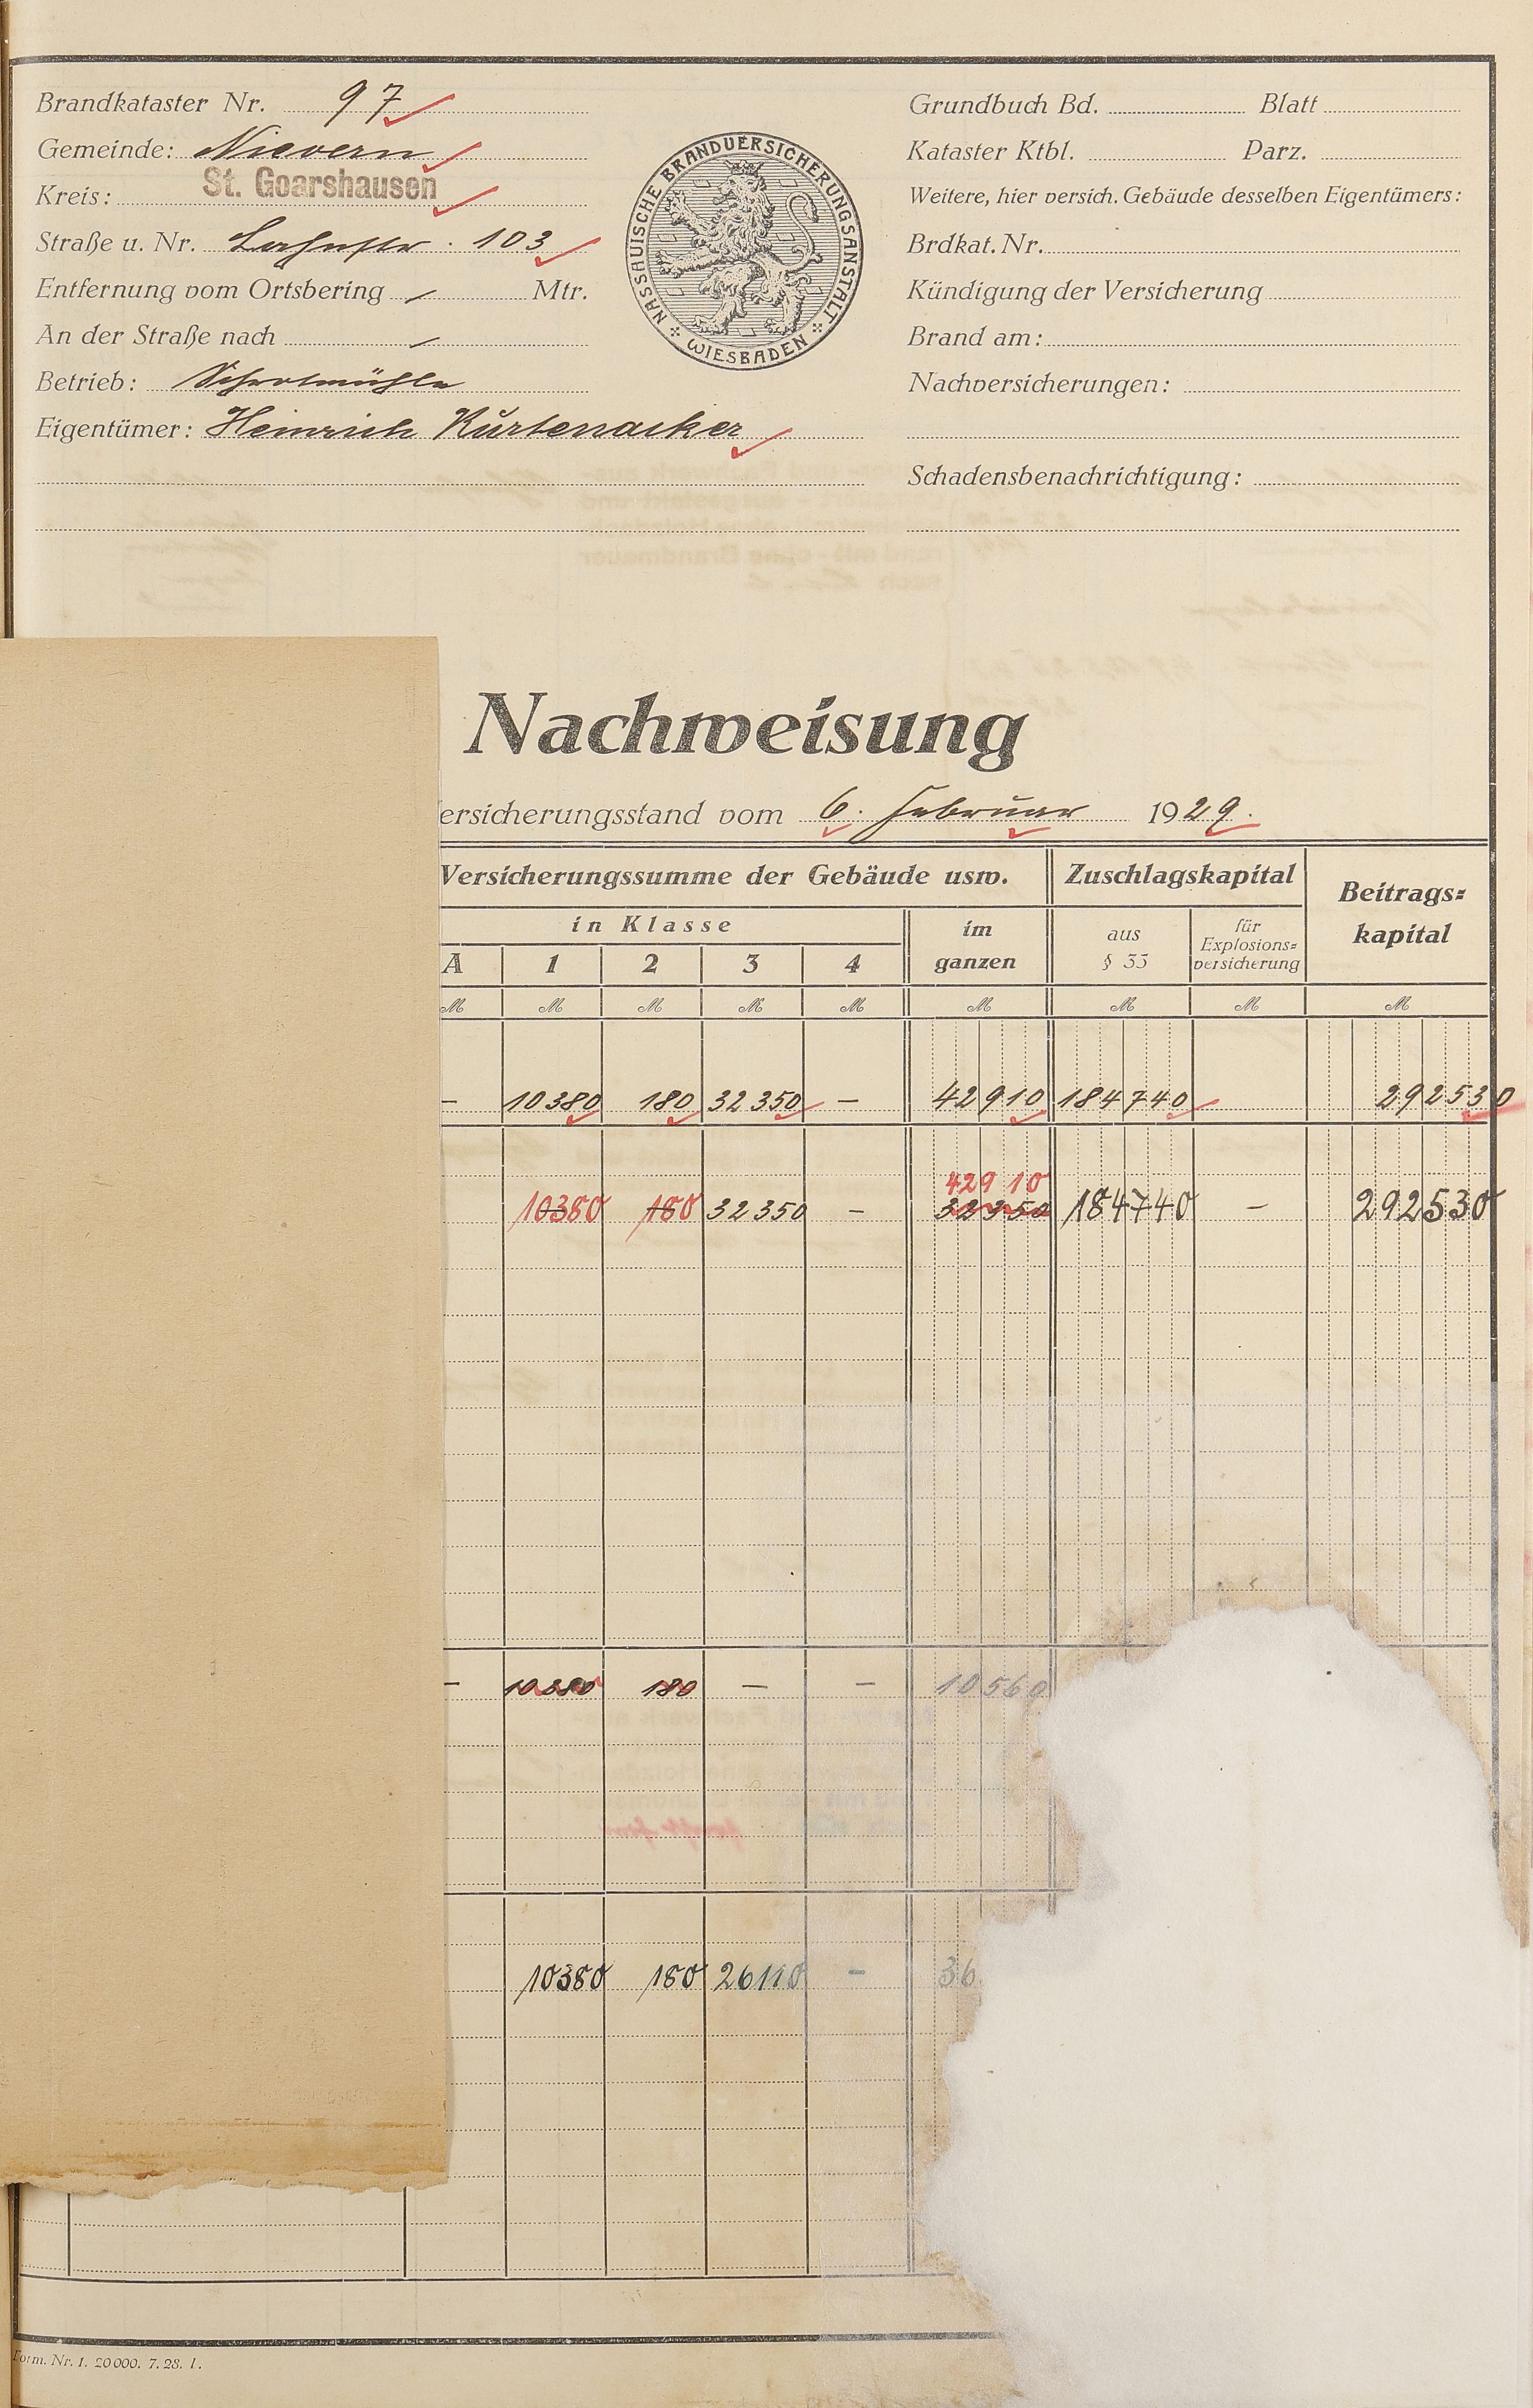 Brandkataster Nr. 97
Gemeinde: Nievern
Kreis: St. Goarshausen
Straße u. Nr. Lahnstr. 103
Entfernung vom Ortsbering – Mtr.
An der Straße nach –
Betrieb: Schrotmühle
Eigentümer: Heinrich Kürtenacker
NASSAUISCHE BRANDVERSICHERUNGSANSTALT
WIESBADEN
Grundbuch Bd. Blatt
Kataster Ktbl. Parz.
Weitere, hier versich. Gebäude desselben Eigentümers:
Brdkat. Nr.
Kündigung der Versicherung
Brand am:
Nachversicherungen:
Schadensbenachrichtigung:
Nachweisung
ersicherungsstand vom 6. Februar 1929.
Versicherungssumme der Gebäude usw. Zuschlagskapital Beitrags=
kapital
in Klasse im
ganzen aus
§ 33 für
Explosions=
versicherung
A 1 2 3 4
M M M M M M M M M
– 10380 180 32350 – 42910 184740 292530
42910
10380 180 32350 – 32350 184740 – 292530
– 10380 180 – – 10560
10380 180 26110 – 36
Form. Nr. 1. 20000. 7. 28. I.